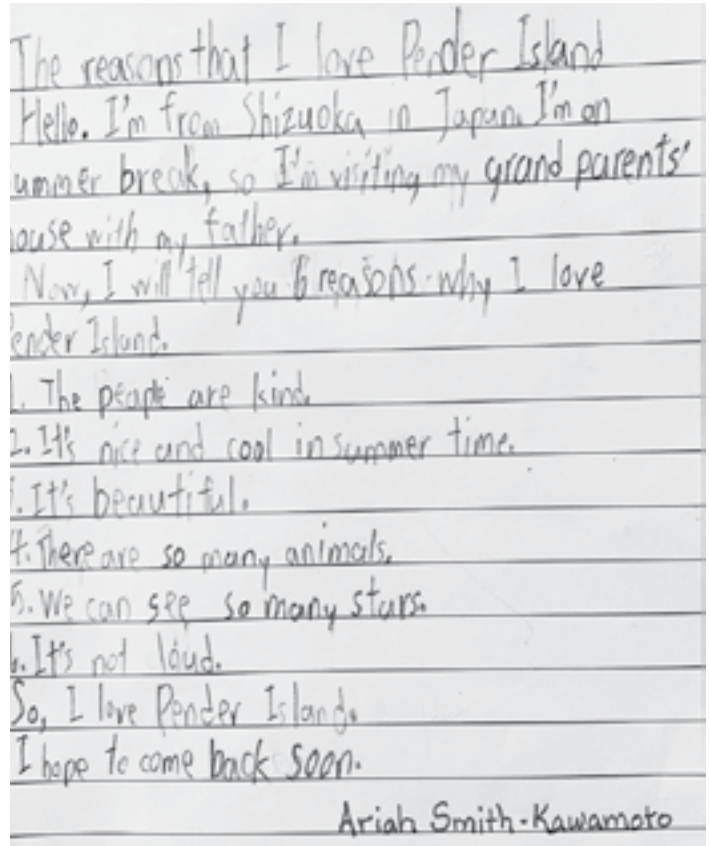 The reasons that I love Pender Island
Hello. I'm from Shizuoka in Japan. I'm on
ummer break, so I'm visiting my grand parents'
ouse with my father.
Now, I will tell you 6 reasons why I love
ender Island.
1. The people are kind.
2. It's nice and cool in summer time.
. It's beautiful.
4. There are so many animals.
5. We can see so many stars.
. It's not loud.
So, I love Pender Island.
I hope to come back soon.
Ariah Smith-Kawamoto